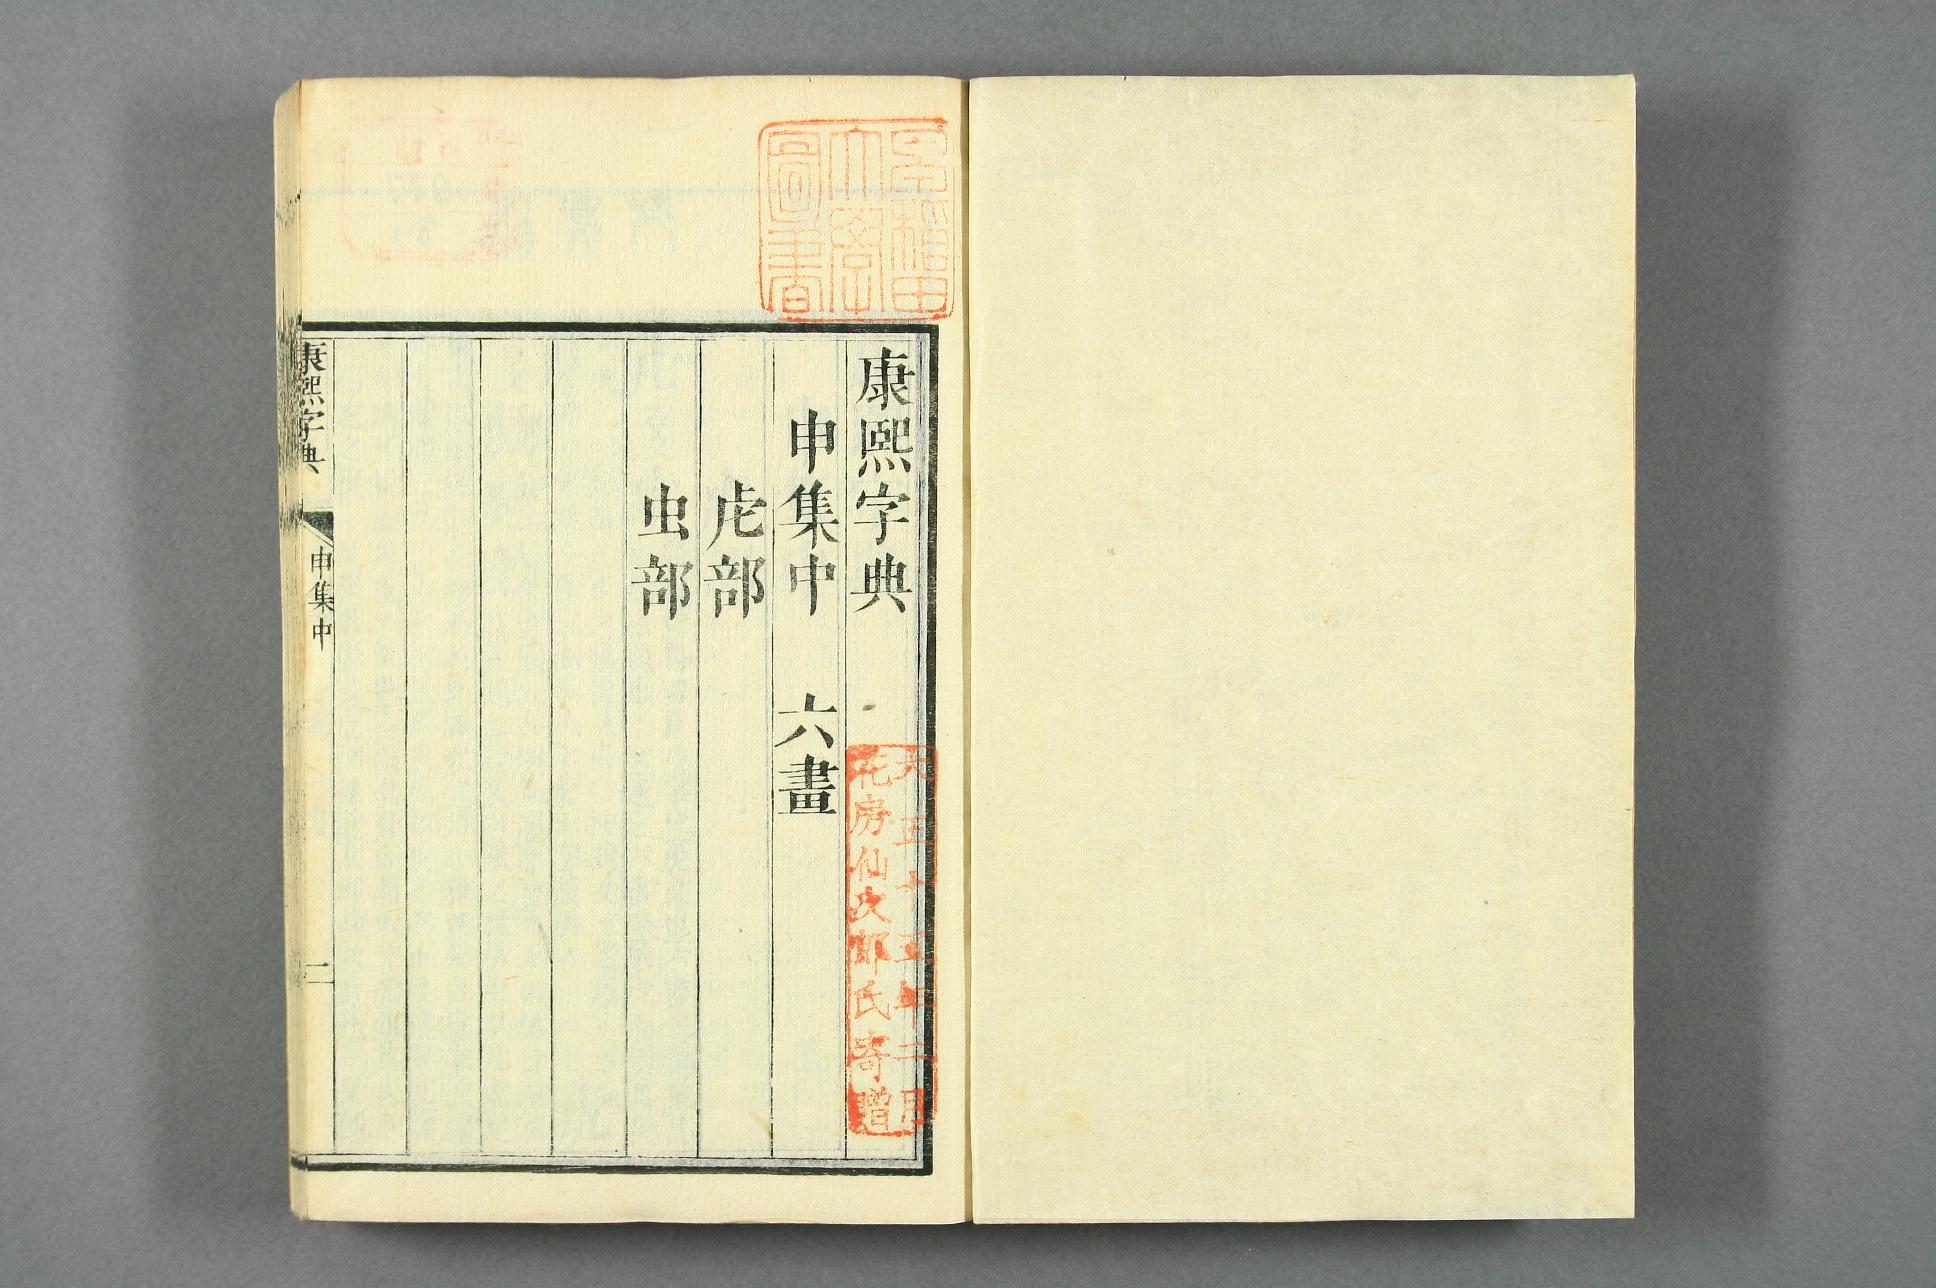 早稲田
大學
圖書
康熙字典
申集中　六畫
虍部
虫部
大正十五年二月
花房仙次郎氏寄贈
康熙字典
申集中
二